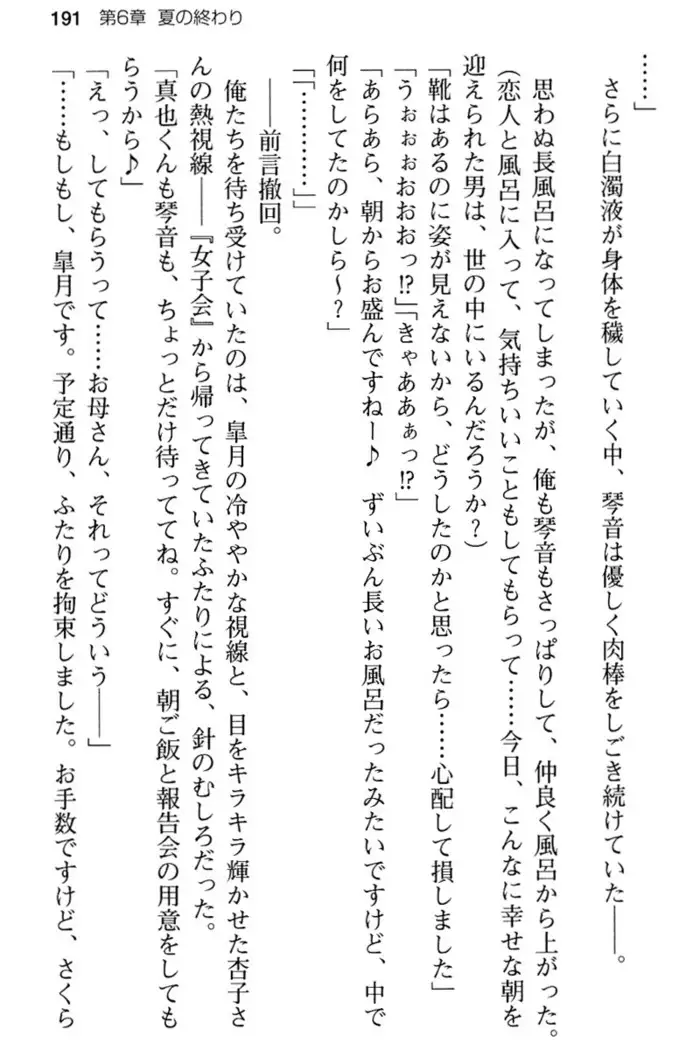 191 第6章 夏の終わり
……」
さらに白濁液が身体を穢していく中、琴音は優しく肉棒をしごき続けていた――。
思わぬ長風呂になってしまったが、俺も琴音もさっぱりして、仲良く風呂から上がった。
(恋人と風呂に入って、気持ちいいこともしてもらって……今日、こんなに幸せな朝を
迎えられた男は、世の中にいるんだろうか?)
「靴はあるのに姿が見えないから、どうしたのかと思ったら……心配して損しました」
「うぉぉぉおおおっ!?」「きゃああぁっ!?」
「あらあら、朝からお盛んですねー♪ ずいぶん長いお風呂だったみたいですけど、中で
何をしてたのかしら〜?」
「「…………」」
――前言撤回。
俺たちを待ち受けていたのは、皐月の冷ややかな視線と、目をキラキラ輝かせた杏子さ
んの熱視線――『女子会』から帰ってきていたふたりによる、針のむしろだった。
「真也くんも琴音も、ちょっとだけ待っててね。すぐに、朝ご飯と報告会の用意をしても
らうから♪」
「えっ、してもらうって……お母さん、それってどういう――」
「……もしもし、皐月です。予定通り、ふたりを拘束しました。お手数ですけど、さくら